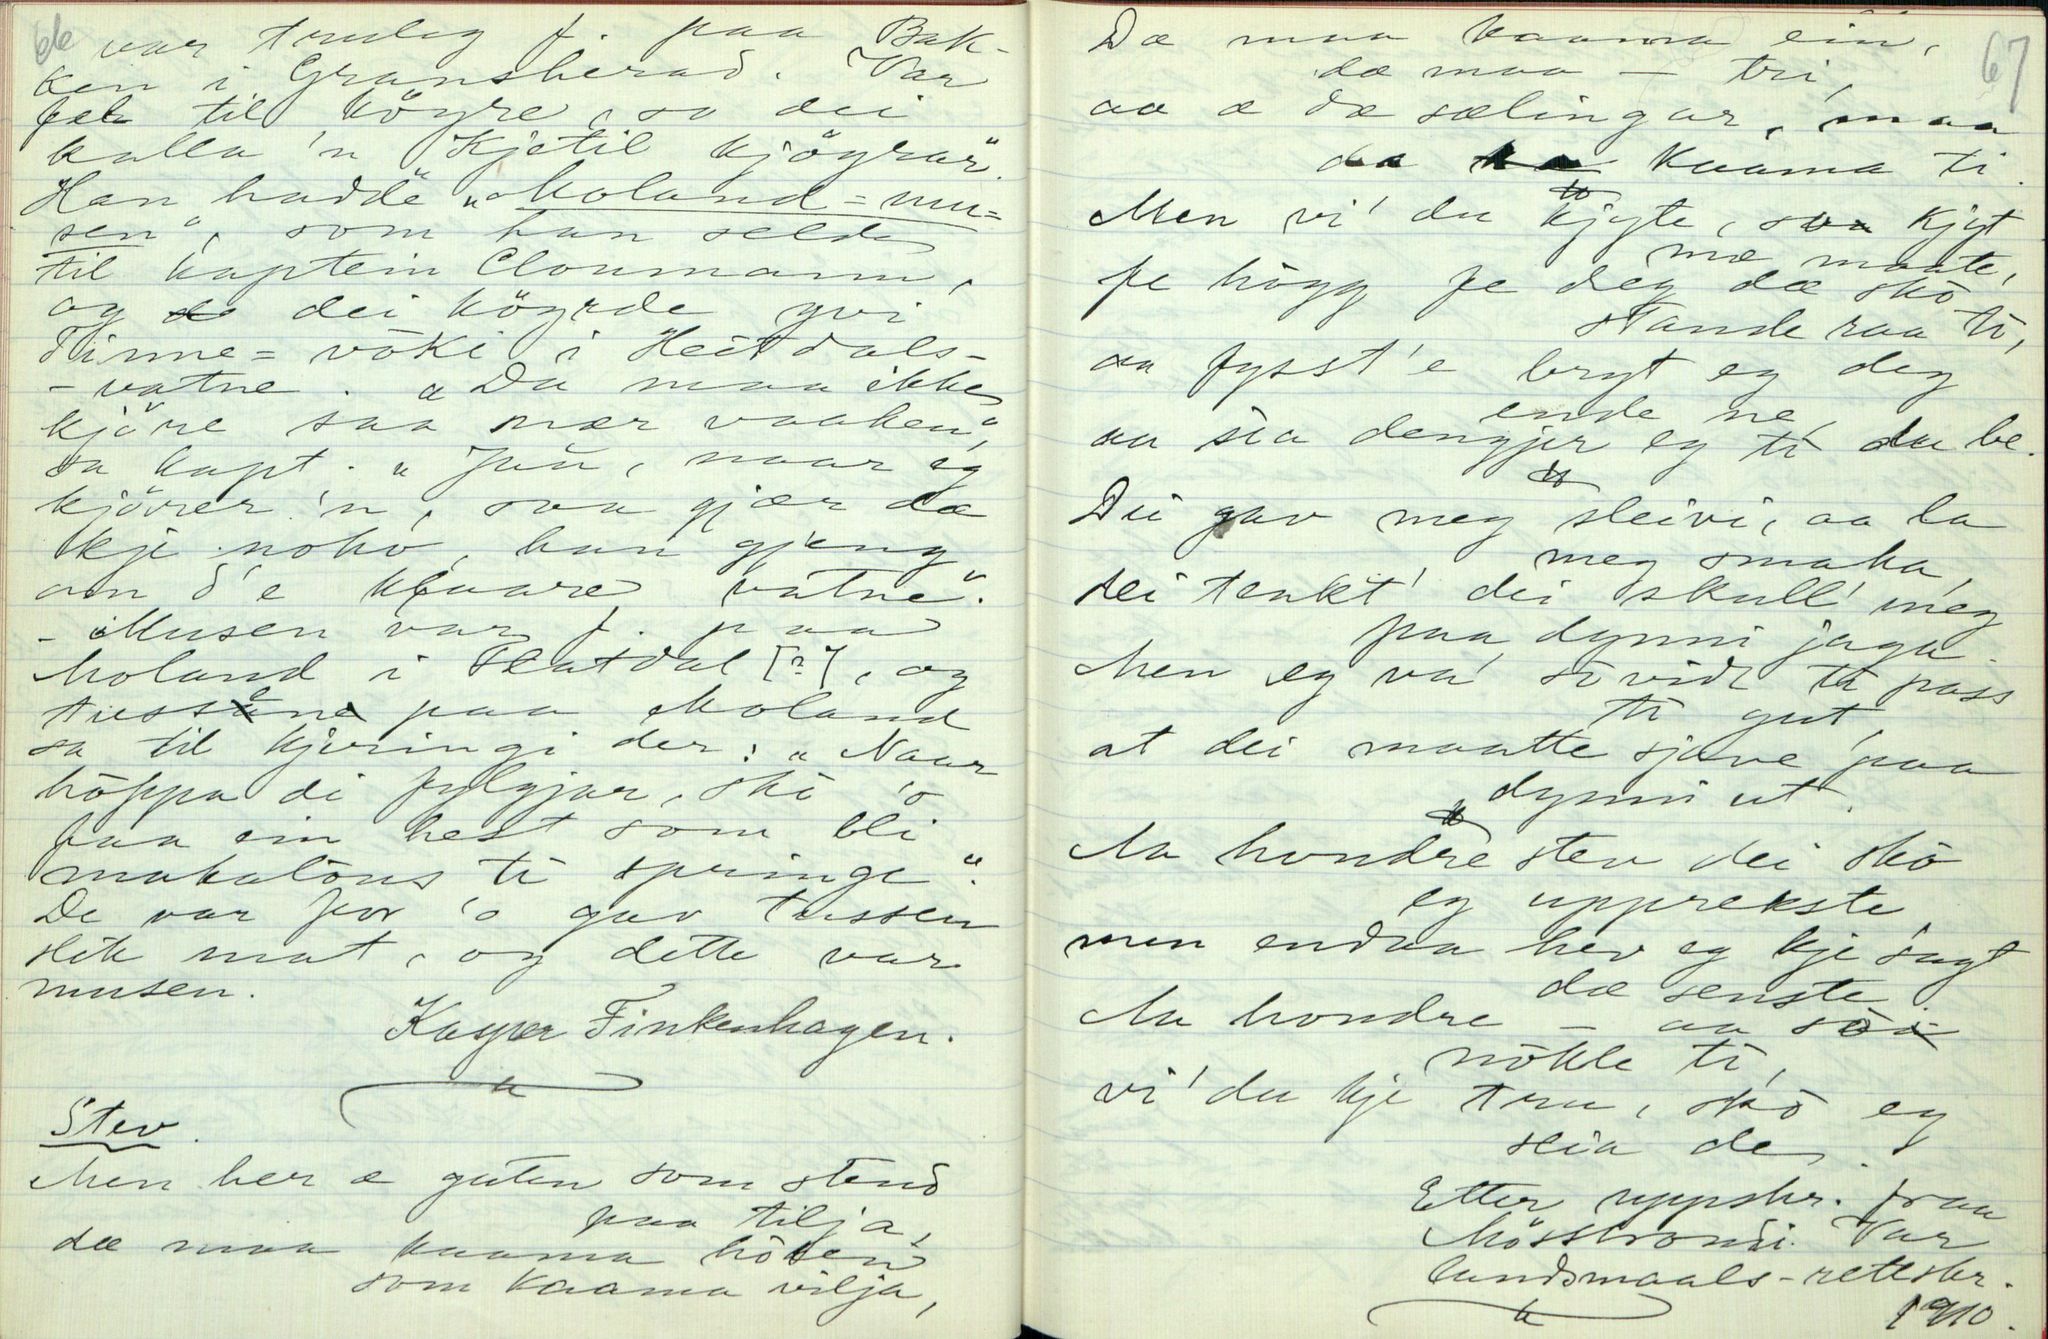 66
var truleg f. paa Bak-
ken i Gransherad. Var
fæl til köyre, so dei
kalla 'n "Kjetil kjöyrar".
Han hadde "Moland-mu-
sen", som han selde
til kaptein Cloumann,
og dei köyrde yvi
Tinne-vöki i Heitdals-
-vatne. "Du maa ikke
kjöre saa nær vaaken",
sa kapt. "Jau, naar eg
kjörer 'n, sva gjær dæ
kje noko, han gjeng
om d'e klaare vatne".
- Musen var f. paa
Moland i Flatdal [?], og
tussane paa Moland
sa til kjeringi der: "Naar
höppa di fylgjar, skö 'o
faa ein hest som bli
makalöus ti springe".
De var for 'o gav tussen
slik mat, og dette var
musen.
Kasper Finkenhagen.
Stev.
Men her æ guten som stend
paa tilja,
dæ maa kaama höken
som kaama vilja,
67
Dæ maa kaama ein,
dæ maa – tri,
aa æ dæ sælingar, maa
da kaama ti.
Men vi' du kjyte, so kjyt
mæ maate,
fe högg fe deg dæ skö
stande raa ti,
aa fysst'e bryt eg deg
ende ne,
aa sia dengjer eg ti du be.
Dei gav meg sleivi, aa la
meg smaka,
dei tenkt' dei skull' meg
paa dynni jaga.
Men eg va' so vidt ti pass
ti gut,
at dei maatte sjave paa
dynni ut.
Aa hondre stev dei skö
eg upprekste,
men endaa hev eg kje sagt
dæ senste.
Aa hondre – aa so
nökle ti,
vi' du kje tru, skö eg
seia de.
Etter uppskr. fraa
Mösstrondi. Var
landsmaals-rettskr.
1910.